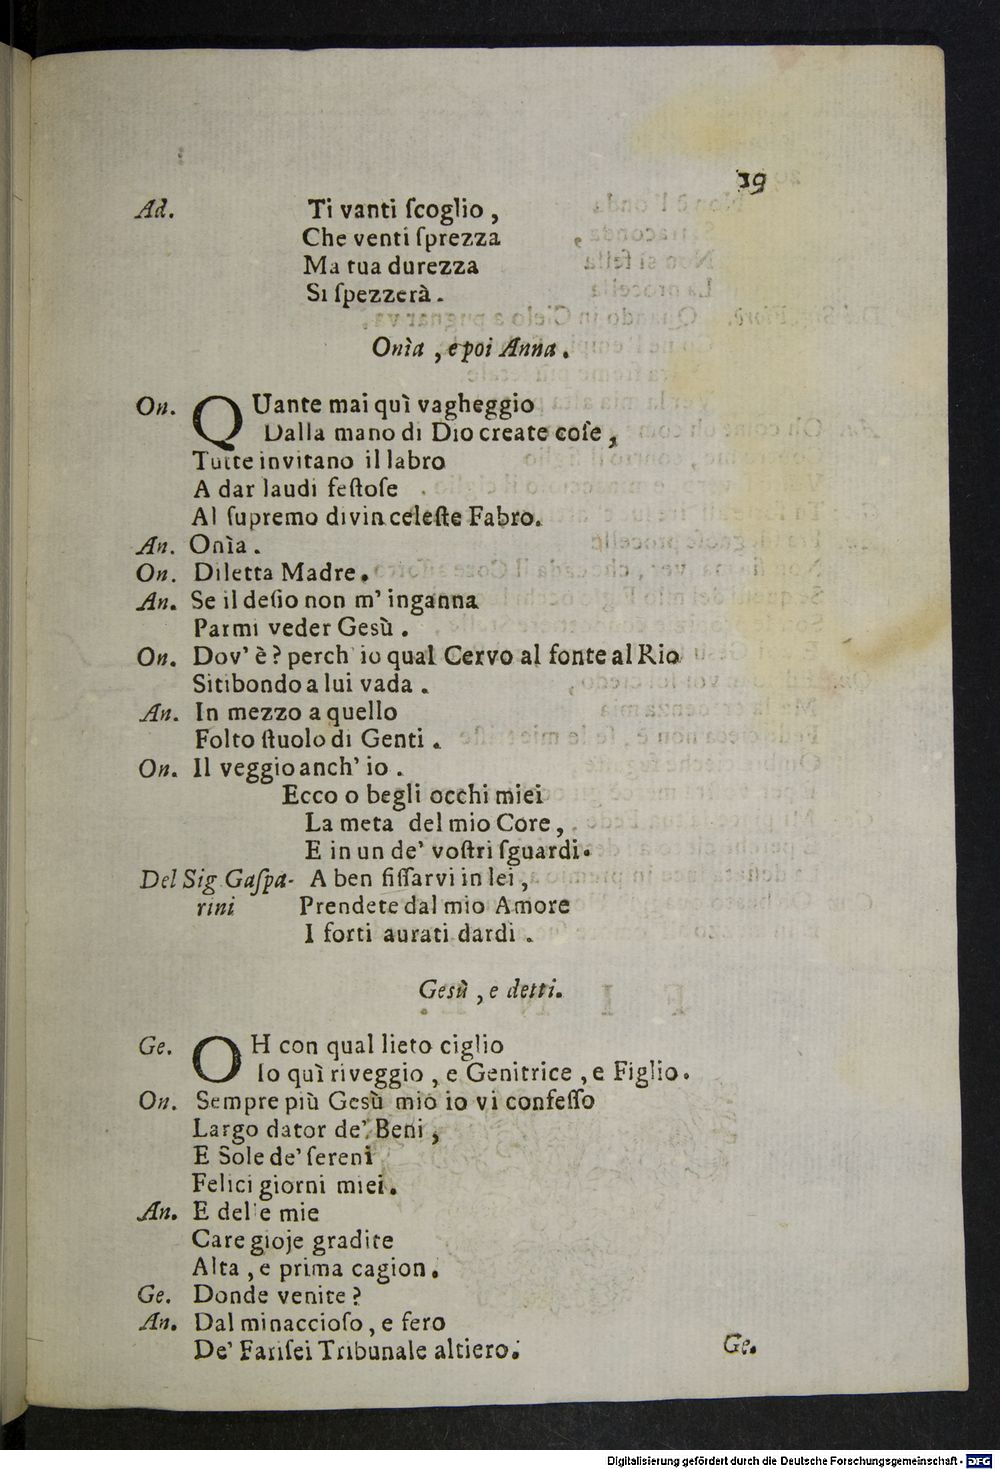 19
Ad. Ti vanti ſcoglio ,
Che venti ſprezza
Ma tua durezza
Si ſpezzerà .
Onìa , e poi Anna .
On. QUante mai quì vagheggio
Dalla mano di Dio create coſe ,
Tutte invitano il labro
A dar laudi feſtoſe
Al ſupremo divin celeſte Fabro.
An. Onìa .
On. Diletta Madre .
An. Se il deſio non m' inganna
Parmi veder Gesù .
On. Dov' è ? perch' io qual Cervo al fonte al Rio
Sitibondo a lui vada .
An. In mezzo a quello
Folto ſtuolo di Genti .
On. Il veggio anch' io .
Ecco o begli occhi miei
La meta del mio Core ,
E in un de' voſtri ſguardi .
Del Sig. Gaſpa- A ben fiſſarvi in lei ,
rini Prendete dal mio Amore
I forti aurati dardi .
Gesù , e detti.
Ge. OH con qual lieto ciglio
Io quì riveggio , e Genitrice , e Figlio .
On. Sempre più Gesù mio io vi confeſſo
Largo dator de' Beni ,
E Sole de' ſereni
Felici giorni miei .
An. E delle mie
Care gioje gradite
Alta , e prima cagion .
Ge. Donde venite ?
An. Dal minaccioſo , e fero
De' Fariſei Tribunale altiero .
Ge.
Digitalisierung gefördert durch die Deutsche Forschungsgemeinschaft - DFG